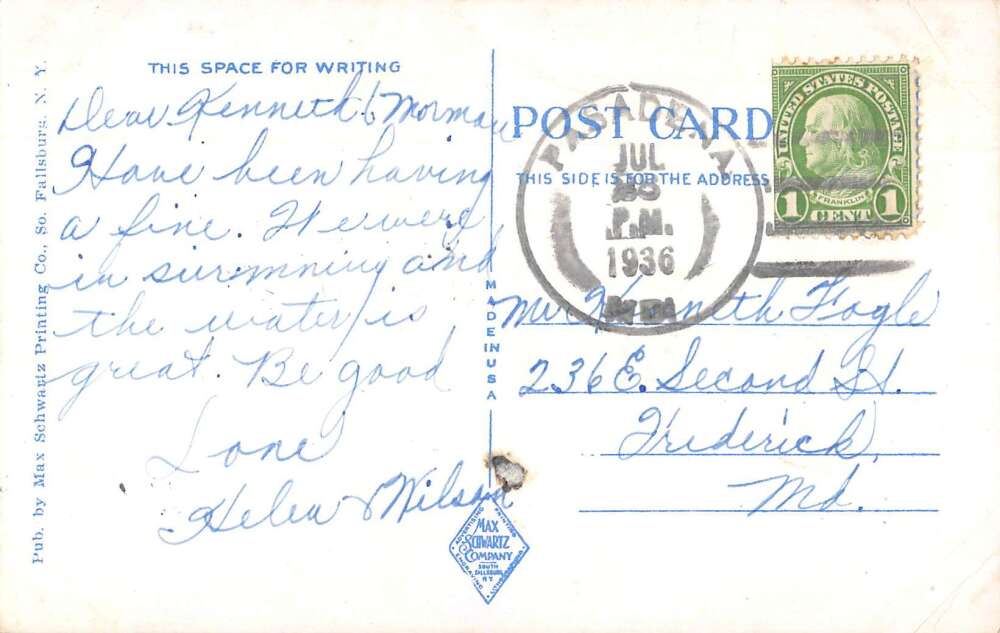 THIS SPACE FOR WRITING
Dear Kenneth & Norman
Have been having
a fine. We were
in swimming and
the water is
great. Be good
Love
Helen & Wilson
Pub. by Max Schwartz Printing Co., So. Fallsburg, N. Y.
MADE IN USA
ADVERTISING PRINTING
MAX
SCHWARTZ
& COMPANY
SOUTH
FALLSBURG
N.Y.
ENGRAVING LITHOGRAPHING
POST CARD
THIS SIDE IS FOR THE ADDRESS
PASADENA
JUL
P.M.
1936
UNITED STATES POSTAGE
FRANKLIN
1 CENT 1
Mr Kenneth Fogle
236 E. Second St.
Frederick,
Md.